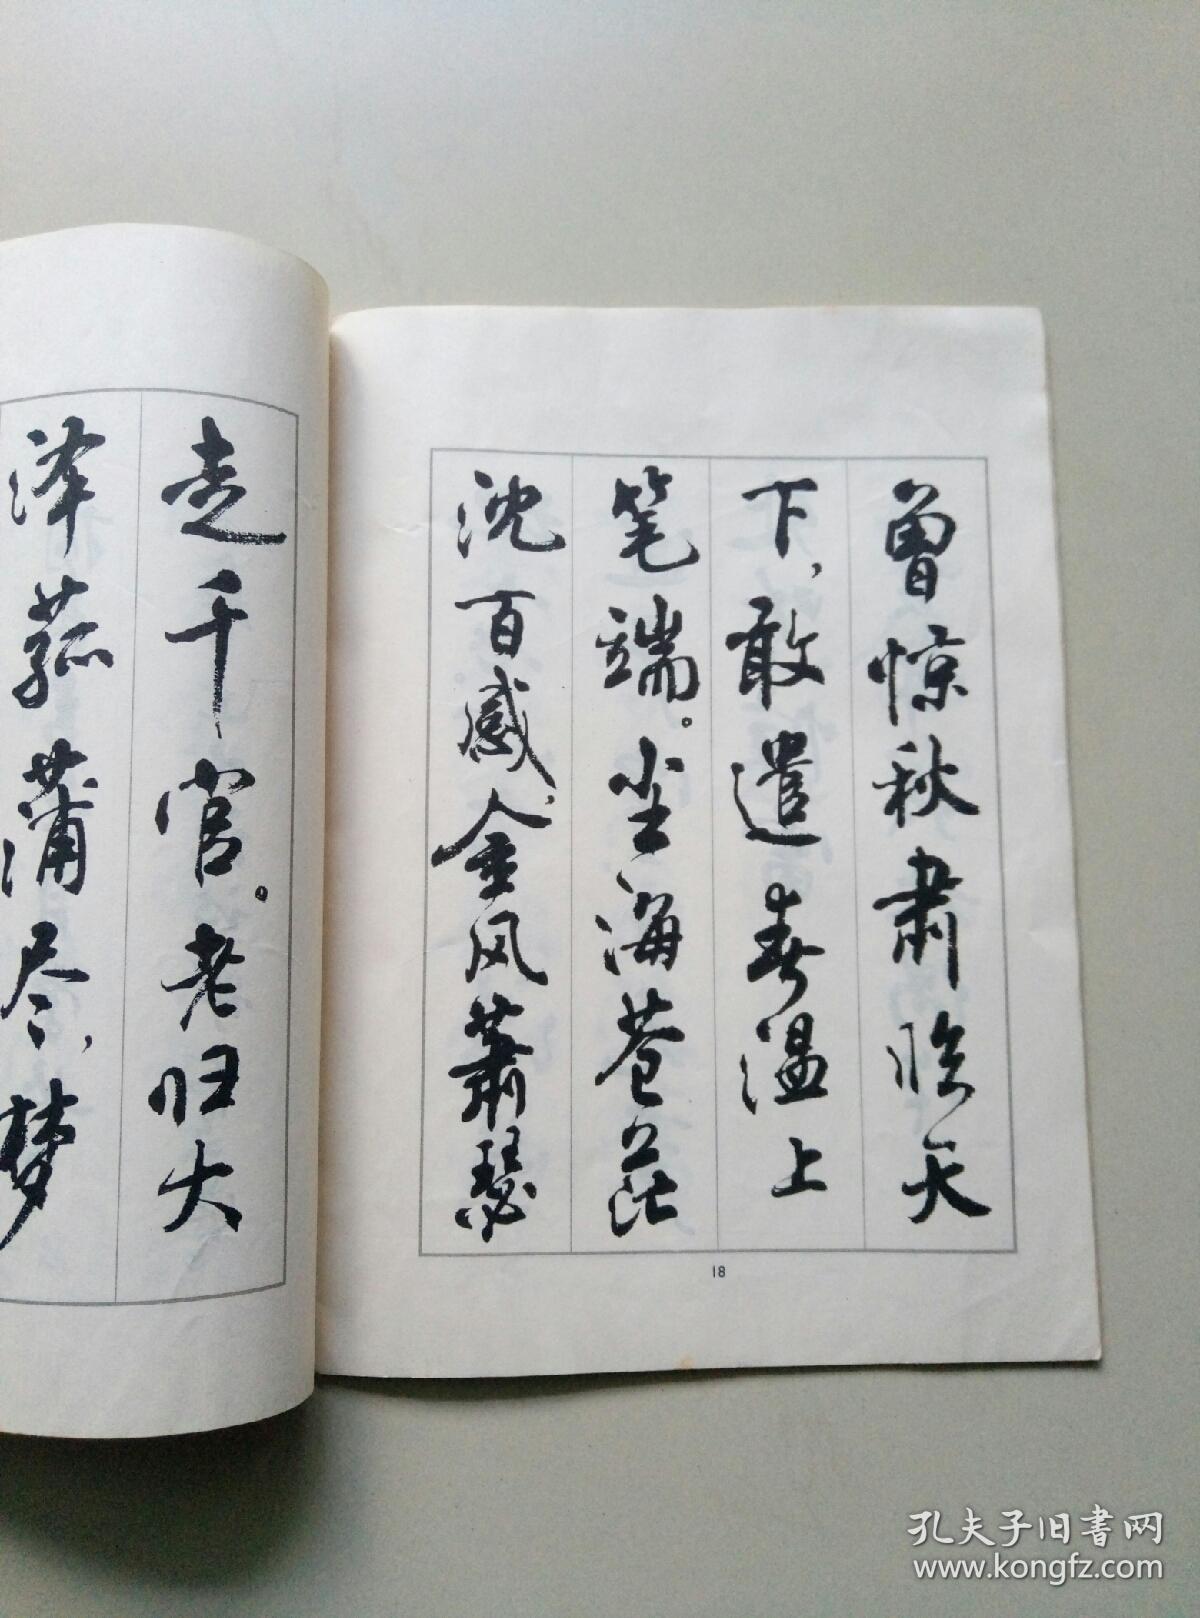 曾惊秋肃临天
下，敢遣春温上
笔端。尘海苍茫
沈百感，金风萧瑟
走千官。老归大
泽菰蒲尽，梦
18
孔夫子旧书网
www.kongfz.com